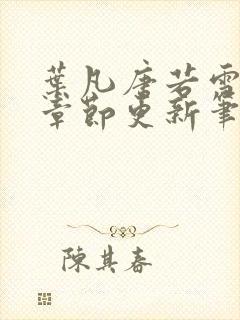 葉凡唐若雪
章節更新筆
陳其春